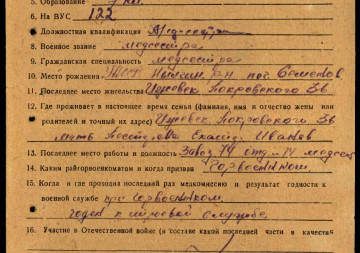 5. Образование 7 кл.
6. На ВУС 122
7. Должностная квалификация Мед-сестра
8. Военное звание медсестра
9. Гражданская специальность медсестра
10. Место рождения р-н пос Семенов
11. Последнее место жительства Ижевск Покровского 36
12. Где проживает в настоящее время семья (фамилия, имя и отчество жены или
родителей и точный их адрес) Ижевск Покровского 36
мать Иванов
13. Последнее место работы и должность Завод 74 отд. медсес
14. Каким райгорвоенкоматом и когда призван Горвоенком.
15. Когда и где проходил последний раз медкомиссию и результат годности к
военной службе при Горвоенком.
годен к строевой службе.
16. Участие в Отечественной войне (в составе какой последней части в качестве